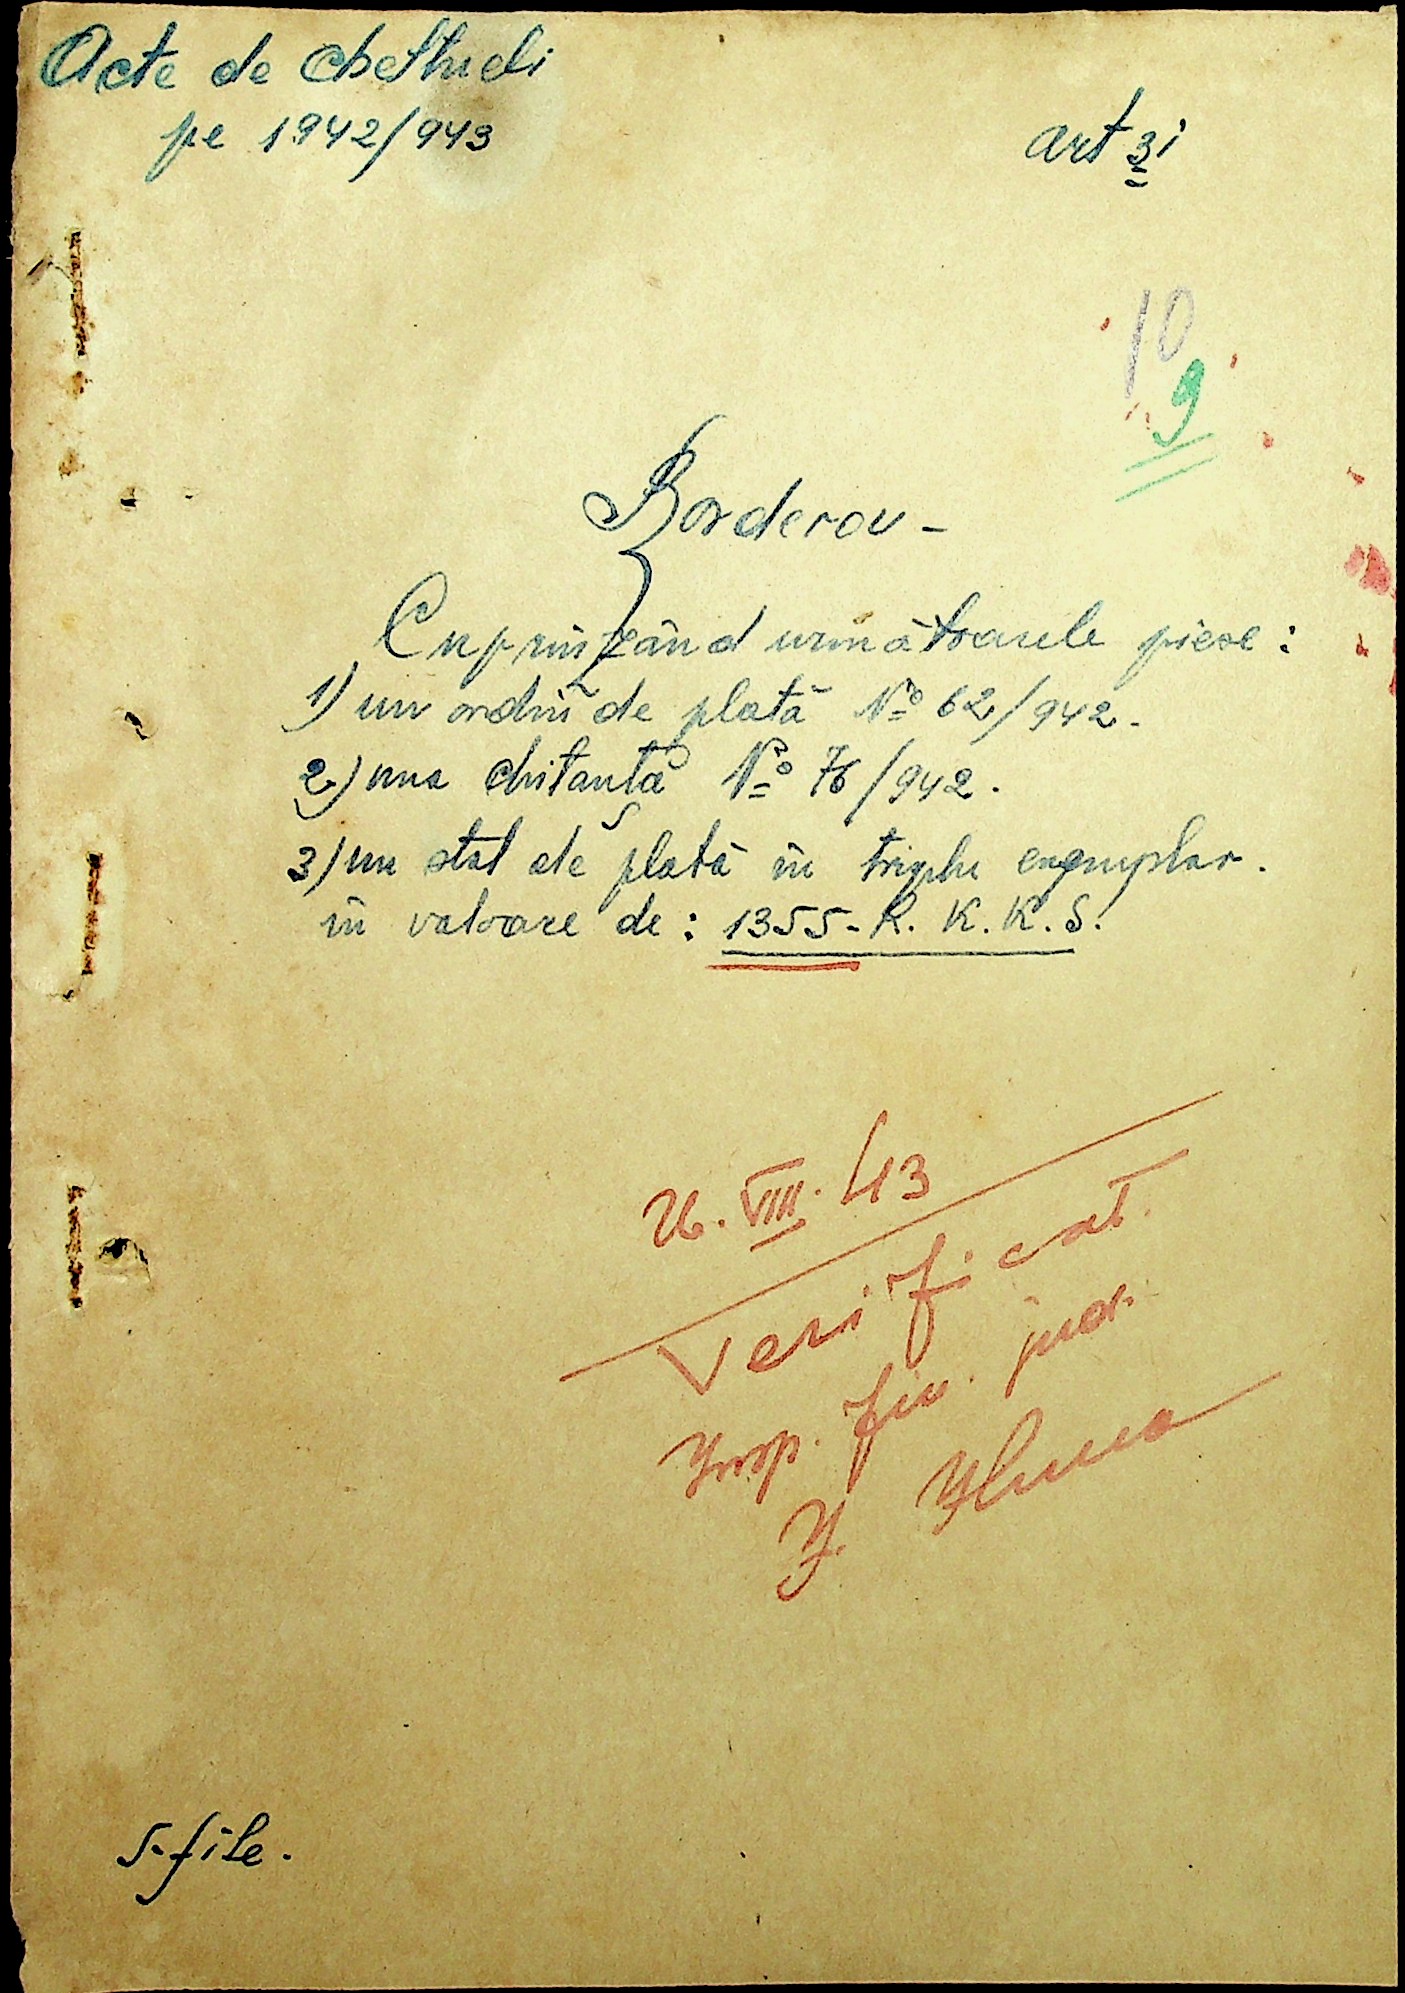 Acte de cheltueli
pe 1942/943
art 3i
10
9
Borderou -
Cuprinzând următoarele piese :
1) un ordin de plată No 62/942.
2) una chitanță No 76/942.
3) un stat de plată în triplu exemplar.
în valoare de : 1355 - R. K. K. S.
26. VIII. 43
Verificat.
Insp. fin. jud.
5-file.